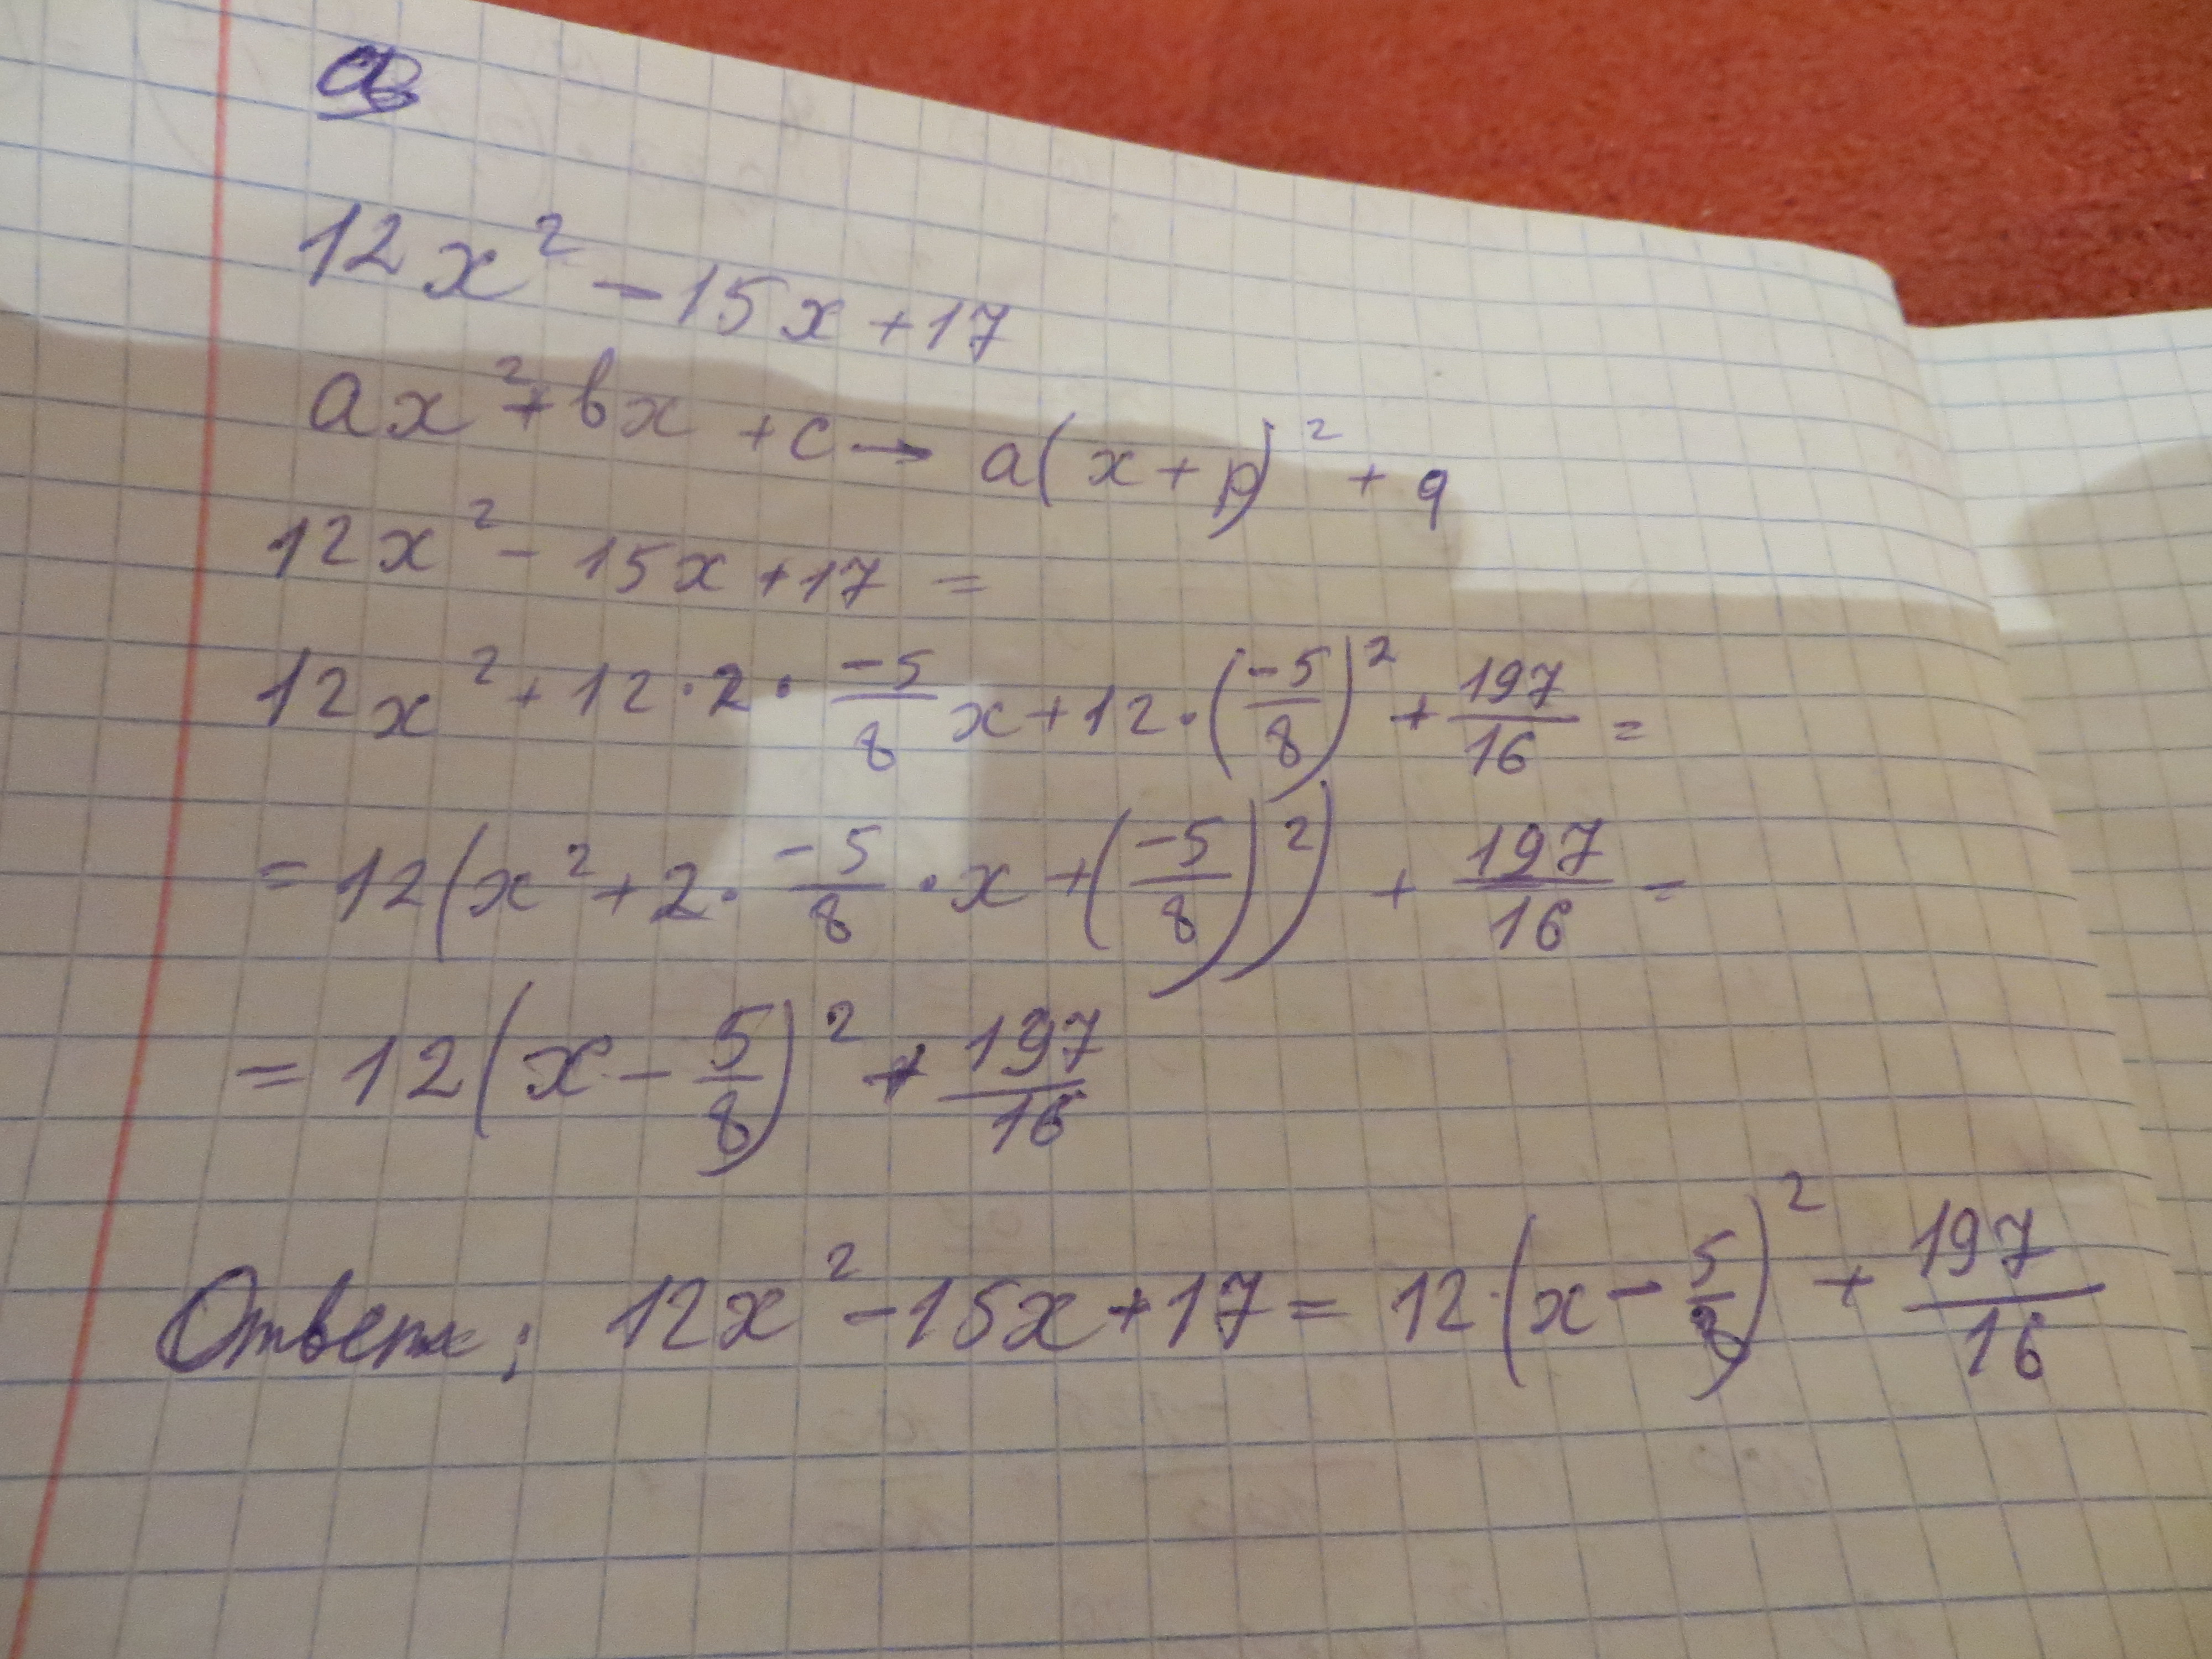 12x² - 15x + 17
ax² + bx + c → a(x + p)² + q
12x² - 15x + 17 =
12x² + 12 · 2 · -5/8 x + 12 · (-5/8)² + 197/16 =
= 12(x² + 2 · -5/8 · x + (-5/8)²) + 197/16 =
= 12(x - 5/8)² + 197/16
Ответ: 12x² - 15x + 17 = 12 · (x - 5/8)² + 197/16